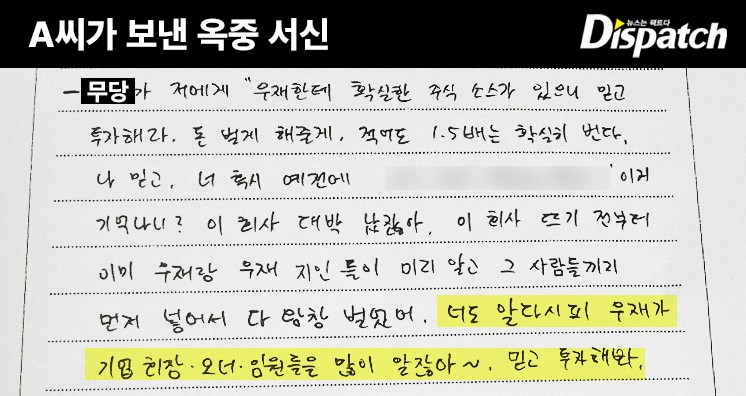 A씨가 보낸 옥중 서신
뉴스는 팩트다
Dispatch
- 무당가 저에게 "우재한테 확실한 주식 소스가 있으니 믿고
투자해라. 돈 벌게 해줄게. 적어도 1.5배는 확실히 번다.
나 믿고. 너 혹시 예전에 '이거
기억나니? 이 회사 대박 났잖아. 이 회사 뜨기 전부터
이미 우재랑 우재 지인들이 미리 알고 그 사람들끼리
먼저 넣어서 다 왕창 벌었어. 너도 알다시피 우재가
기업 회장·오너·임원들을 많이 알잖아~. 믿고 투자해봐.